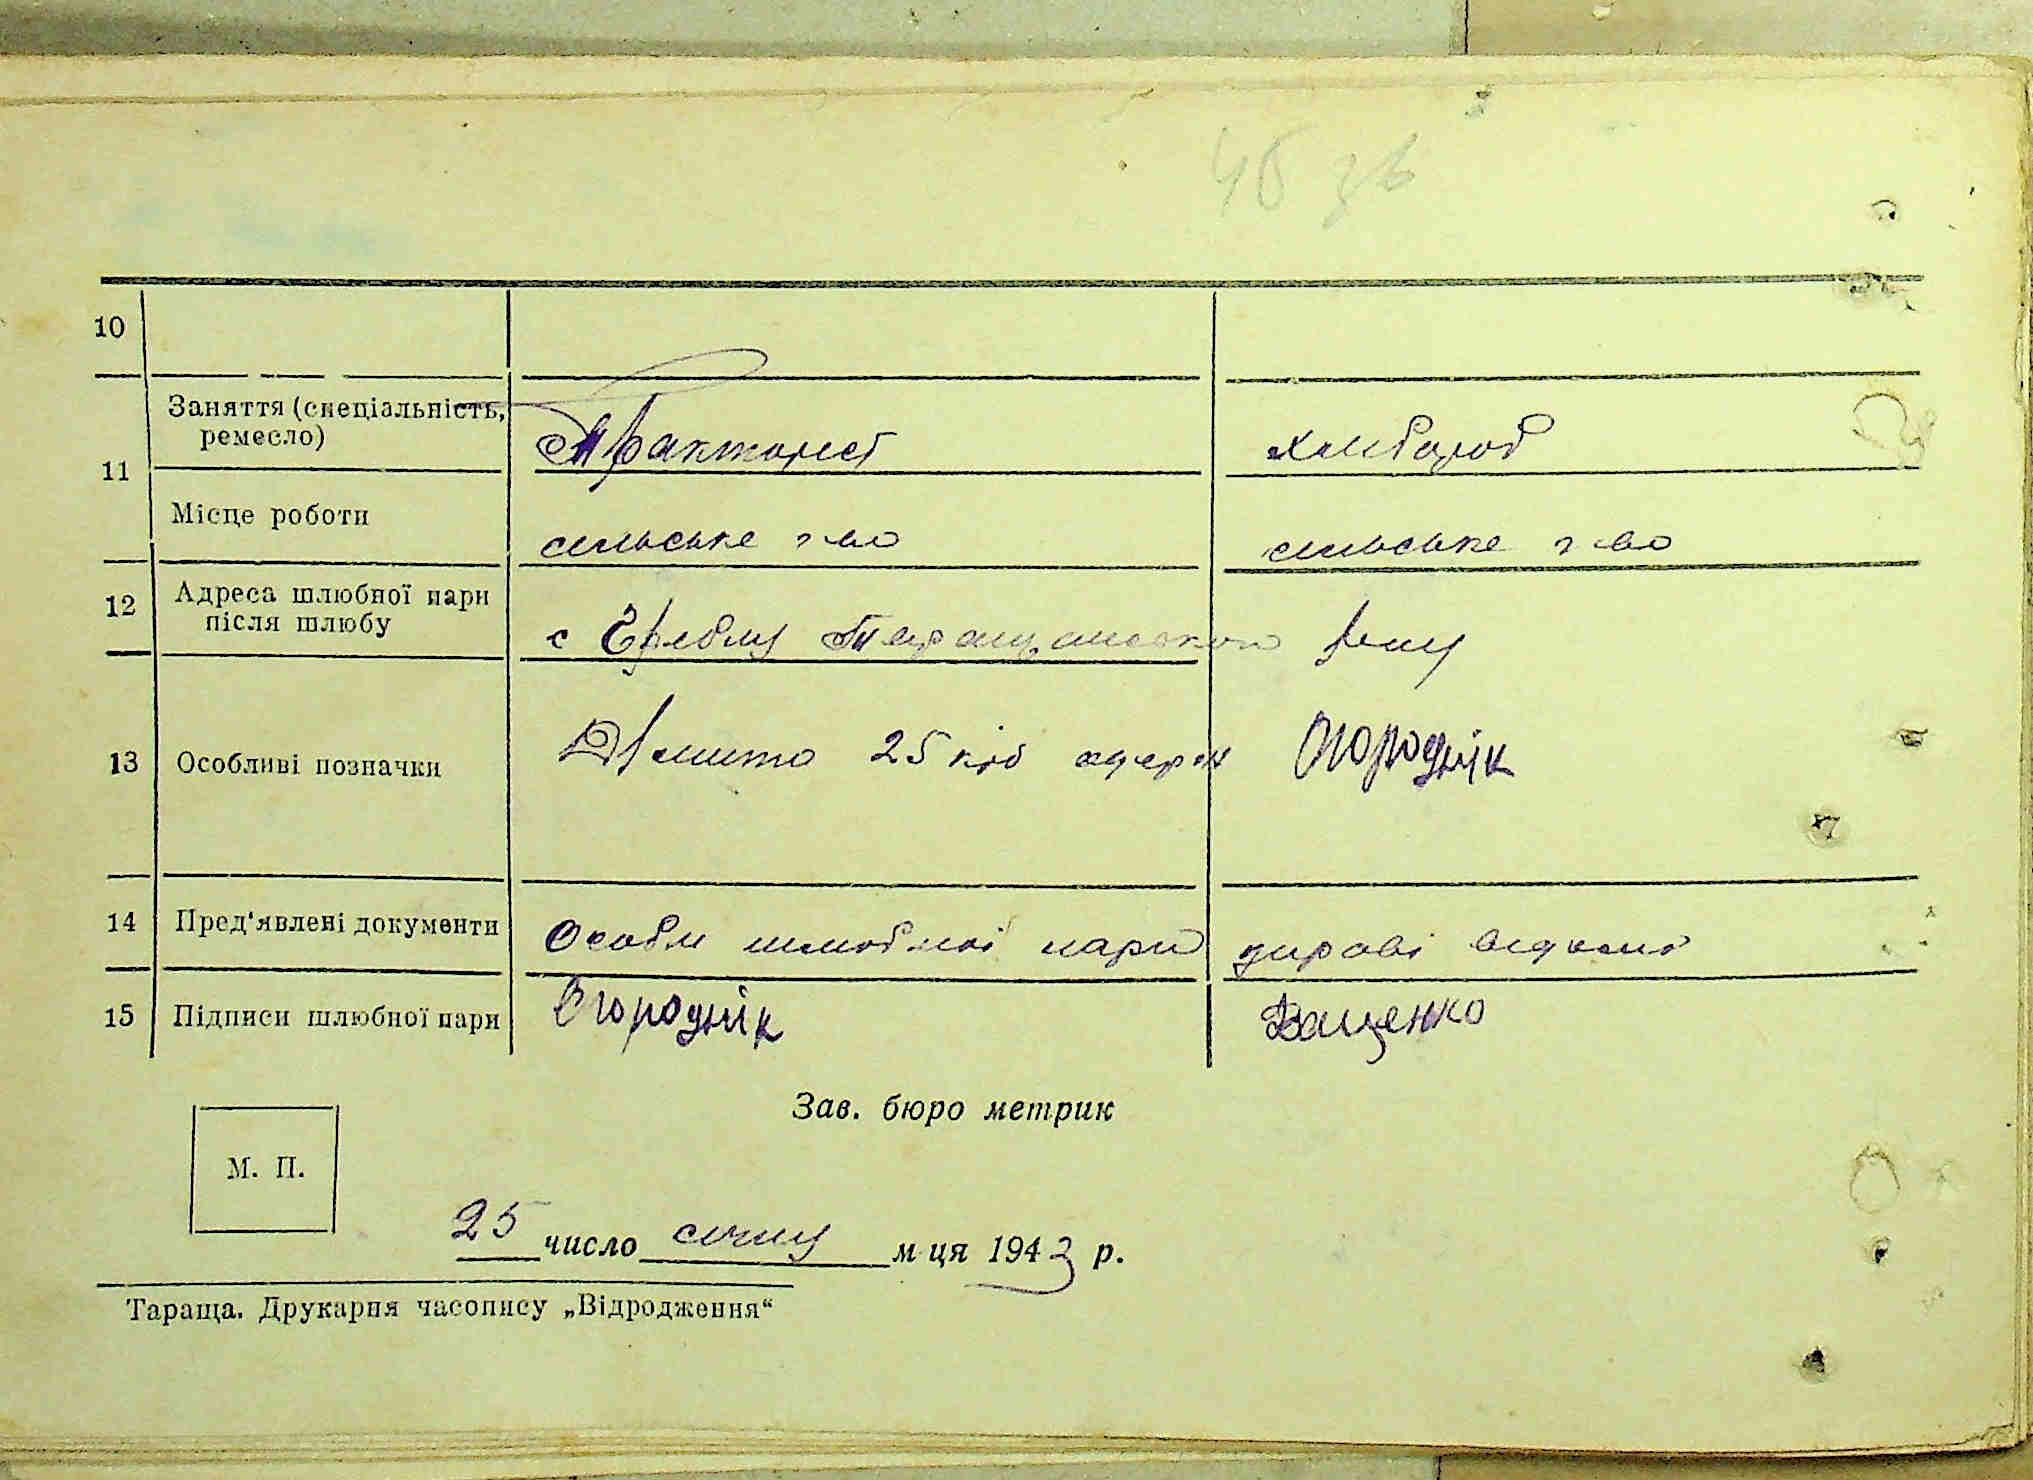 46 зв
10
Заняття (спеціальність, ремесло) Тракторист хлібороб
11
Місце роботи сільське г-во сільське г-во
12 Адреса шлюбної пари після шлюбу с Таращанського р-ну
13 Особливі позначки 25 крб Огороднік
14 Пред'явлені документи Особи шлюбної пари управі відомі
15 Підписи шлюбної пари Огороднік Ващенко
Зав. бюро метрик
М. П.
25 число січня м-ця 1943 р.
Тараща. Друкарня часопису „Відродження“